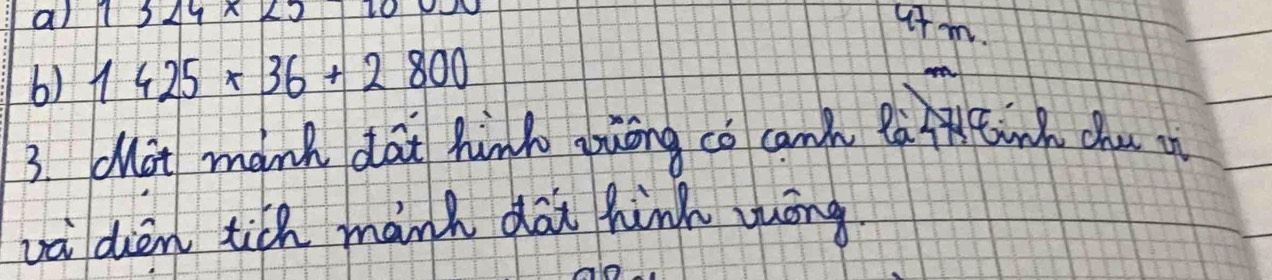 a) 1 324 × 25
47 m.
b) 1 425 × 36 + 2 800
3. Một mảnh đất hình vuông có cạnh là tính chu vi
và diện tích mảnh đất hình vuông.